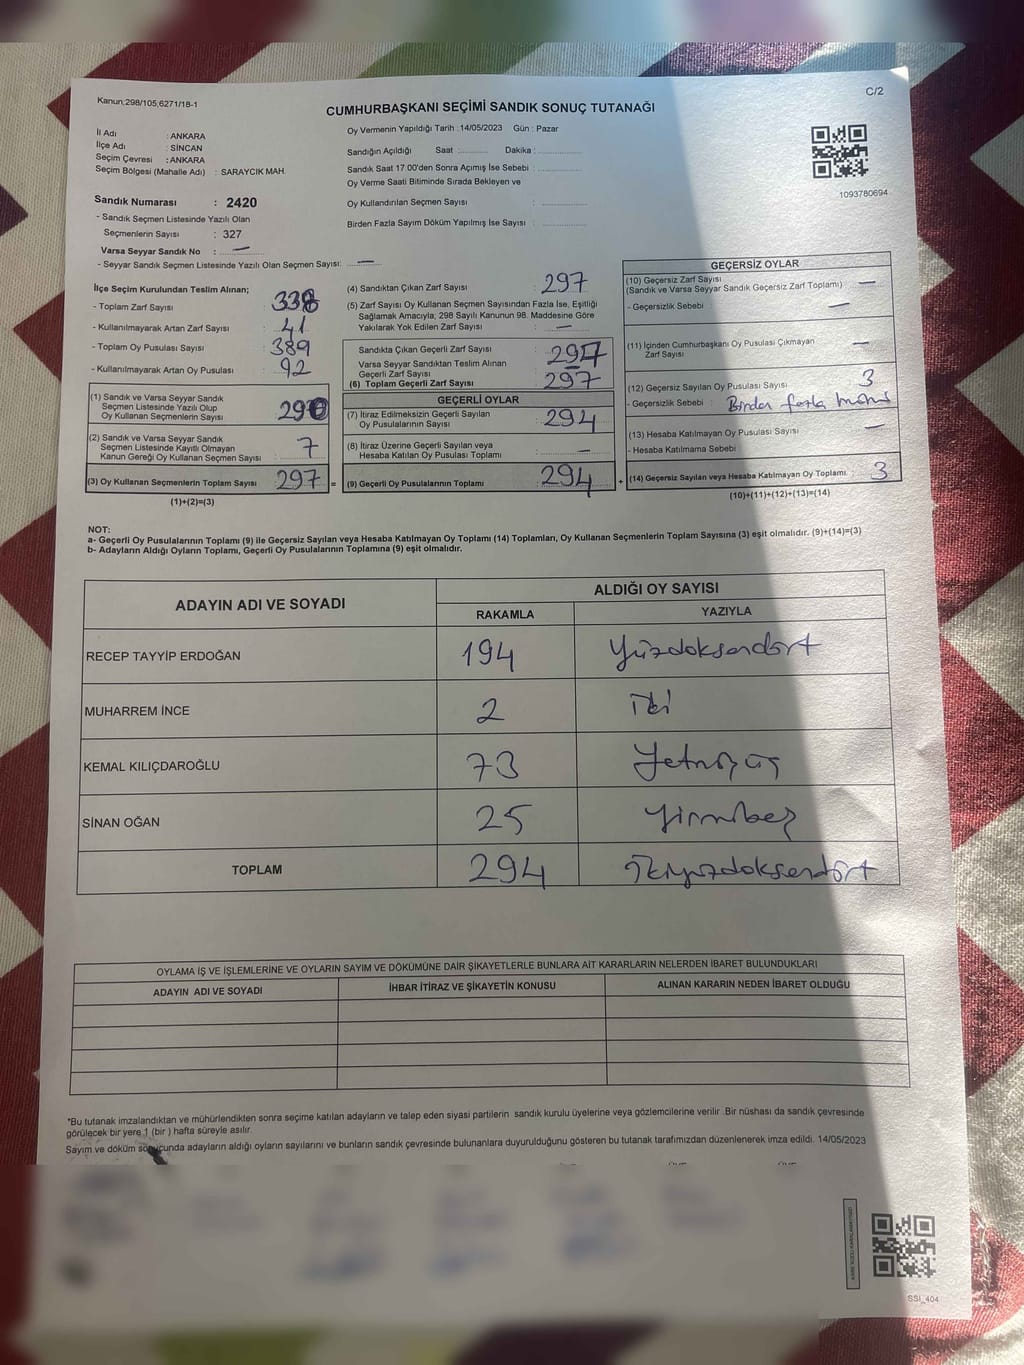 Kanun;298/105,6271/18-1
C/2
CUMHURBAŞKANI SEÇİMİ SANDIK SONUÇ TUTANAĞI
İl Adı : ANKARA
İlçe Adı : SİNCAN
Seçim Çevresi : ANKARA
Seçim Bölgesi (Mahalle Adı) : SARAYCIK MAH.
Sandık Numarası : 2420
- Sandık Seçmen Listesinde Yazılı Olan
Seçmenlerin Sayısı : 327
Varsa Seyyar Sandık No : —
- Seyyar Sandık Seçmen Listesinde Yazılı Olan Seçmen Sayısı: —
Oy Vermenin Yapıldığı Tarih : 14/05/2023 Gün : Pazar
Sandığın Açıldığı Saat :........... Dakika :...........
Sandık Saat 17.00'den Sonra Açımış İse Sebebi :...........
Oy Verme Saati Bitiminde Sırada Bekleyen ve
Oy Kullandırılan Seçmen Sayısı :...........
Birden Fazla Sayım Döküm Yapılmış İse Sayısı :...........
1093780694
İlçe Seçim Kurulundan Teslim Alınan;
- Toplam Zarf Sayısı : 338
- Kullanılmayarak Artan Zarf Sayısı : 41
- Toplam Oy Pusulası Sayısı : 389
- Kullanılmayarak Artan Oy Pusulası : 92
(1) Sandık ve Varsa Seyyar Sandık
Seçmen Listesinde Yazılı Olup
Oy Kullanan Seçmenlerin Sayısı : 290
(2) Sandık ve Varsa Seyyar Sandık
Seçmen Listesinde Kayıtlı Olmayan
Kanun Gereği Oy Kullanan Seçmen Sayısı : 7
(3) Oy Kullanan Seçmenlerin Toplam Sayısı : 297 =
(1)+(2)=(3)
(4) Sandıktan Çıkan Zarf Sayısı : 297
(5) Zarf Sayısı Oy Kullanan Seçmen Sayısından Fazla İse, Eşitliği
Sağlamak Amacıyla; 298 Sayılı Kanunun 98. Maddesine Göre
Yakılarak Yok Edilen Zarf Sayısı : —
Sandıkta Çıkan Geçerli Zarf Sayısı : 297
Varsa Seyyar Sandıktan Teslim Alınan
Geçerli Zarf Sayısı : —
(6) Toplam Geçerli Zarf Sayısı : 297
GEÇERLİ OYLAR
(7) İtiraz Edilmeksizin Geçerli Sayılan
Oy Pusulalarının Sayısı : 294
(8) İtiraz Üzerine Geçerli Sayılan veya
Hesaba Katılan Oy Pusulası Toplamı : —
(9) Geçerli Oy Pusulalarının Toplamı : 294 +
GEÇERSİZ OYLAR
(10) Geçersiz Zarf Sayısı : —
(Sandık ve Varsa Seyyar Sandık Geçersiz Zarf Toplamı)
- Geçersizlik Sebebi : —
(11) İçinden Cumhurbaşkanı Oy Pusulası Çıkmayan
Zarf Sayısı : —
(12) Geçersiz Sayılan Oy Pusulası Sayısı : 3
- Geçersizlik Sebebi : Birden fazla mühür
(13) Hesaba Katılmayan Oy Pusulası Sayısı : —
- Hesaba Katılmama Sebebi :
(14) Geçersiz Sayılan veya Hesaba Katılmayan Oy Toplamı : 3
(10)+(11)+(12)+(13)=(14)
NOT:
a- Geçerli Oy Pusulalarının Toplamı (9) ile Geçersiz Sayılan veya Hesaba Katılmayan Oy Toplamı (14) Toplamları, Oy Kullanan Seçmenlerin Toplam Sayısına (3) eşit olmalıdır. (9)+(14)=(3)
b- Adayların Aldığı Oyların Toplamı, Geçerli Oy Pusulalarının Toplamına (9) eşit olmalıdır.
ADAYIN ADI VE SOYADI
ALDIĞI OY SAYISI
RAKAMLA YAZIYLA
RECEP TAYYİP ERDOĞAN 194 Yüzdoksandört
MUHARREM İNCE 2 İki
KEMAL KILIÇDAROĞLU 73 Yetmişüç
SİNAN OĞAN 25 Yirmibeş
TOPLAM 294 İkiyüzdoksandört
OYLAMA İŞ VE İŞLEMLERİNE VE OYLARIN SAYIM VE DÖKÜMÜNE DAİR ŞİKAYETLERLE BUNLARA AİT KARARLARIN NELERDEN İBARET BULUNDUKLARI
ADAYIN ADI VE SOYADI İHBAR İTİRAZ VE ŞİKAYETİN KONUSU ALINAN KARARIN NEDEN İBARET OLDUĞU
*Bu tutanak imzalandıktan ve mühürlendikten sonra seçime katılan adayların ve talep eden siyasi partilerin sandık kurulu üyelerine veya gözlemcilerine verilir .Bir nüshası da sandık çevresinde
görülecek bir yere 1 (bir ) hafta süreyle asılır.
Sayım ve döküm sonucunda adayların aldığı oyların sayılarını ve bunların sandık çevresinde bulunanlara duyurulduğunu gösteren bu tutanak tarafımızdan düzenlenerek imza edildi. 14/05/2023
SSİ_404